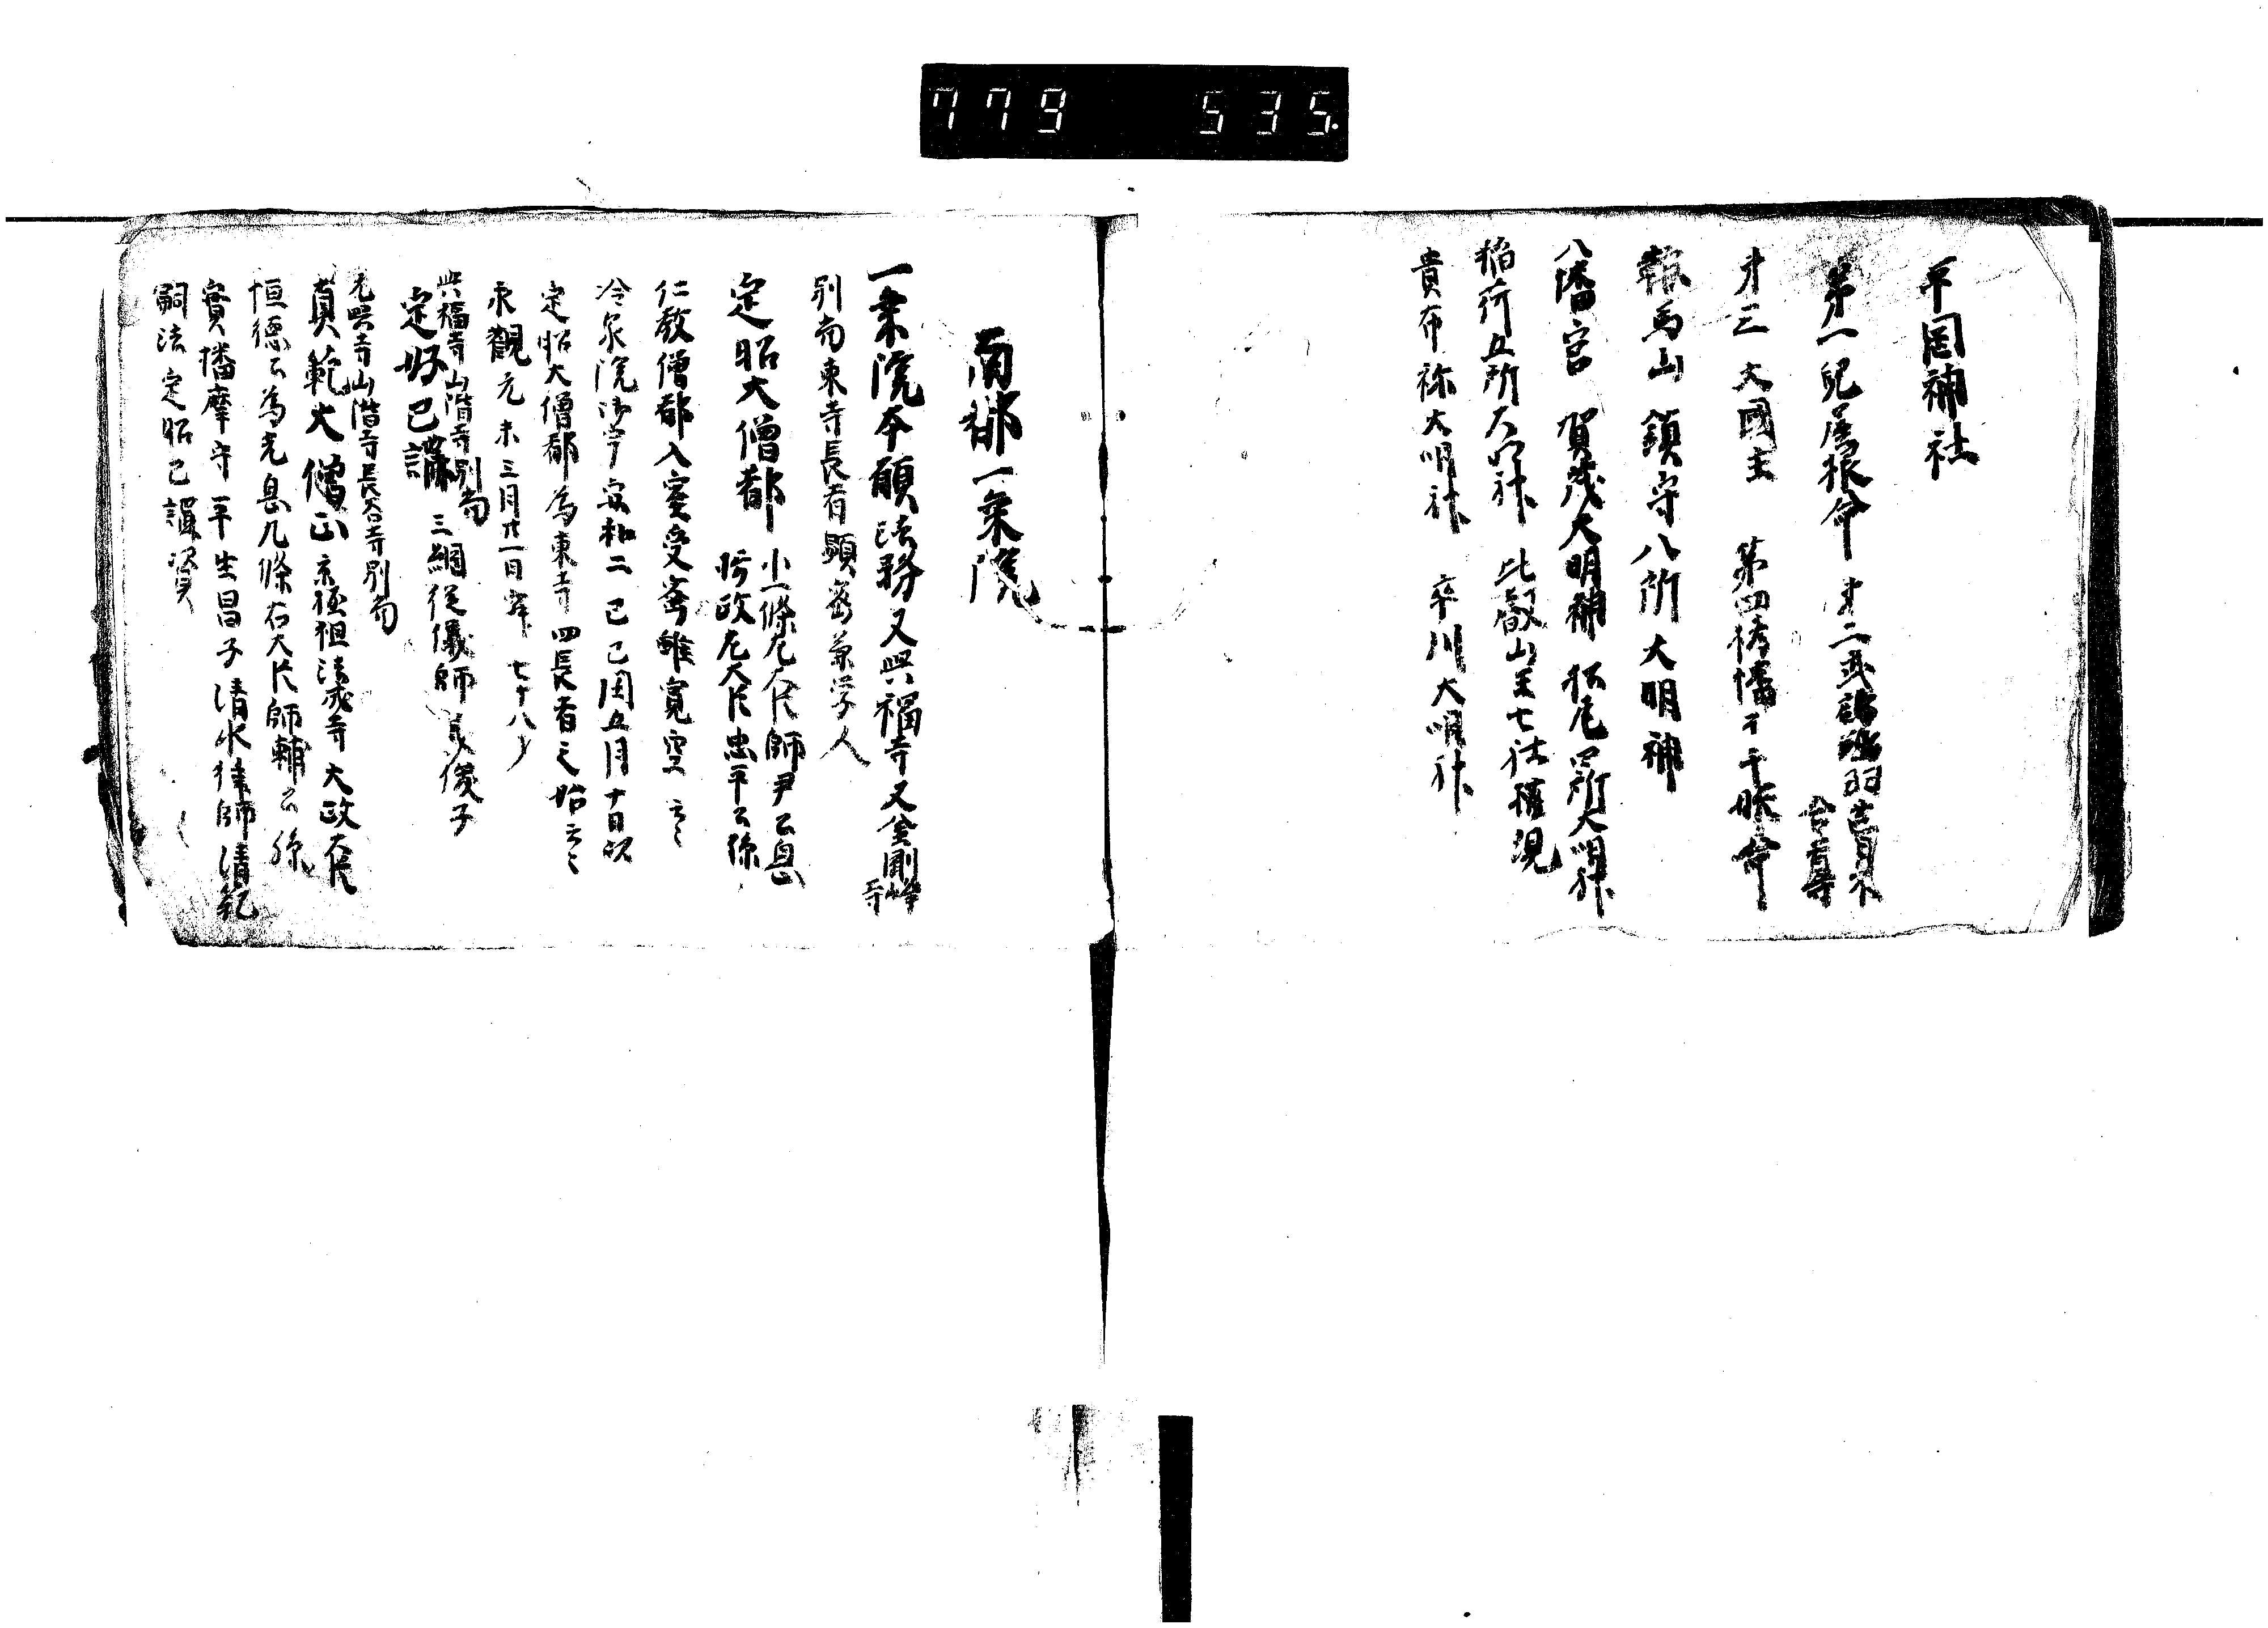 779 535
平岡神社
第一 児屋根命 才二 武
才三 大國主 第四 栲幡千千姫命
鞍馬山 鎮守 八所大明神
八幡宮 賀茂大明神 松尾 四所大明神
稲荷五所大明神 比叡山王七社権現
貴布祢大明神 率川大明神
南都一乗院
一乗院本願 法務 又興福寺 又金剛峰寺
別当 東寺長者 顕密兼学人
定昭大僧都 小一條左大臣師尹公息
摂政左大臣忠平公孫
仁敦僧都入室 受密雖寛空云々
冷泉院御宇安和二己巳閏五月十日以
定昭大僧都為東寺四長者之始云々
永観元未三月廿一日寂 七十八才
興福寺山階寺別当
定好已講 三綱従儀師 子
元興寺山階寺長谷寺別当
真範大僧正 京極祖法成寺大政大臣
恒徳公為光息 九條右大臣師輔公孫
實播磨守平生昌子 清水律師清範
嗣法 定昭已講資